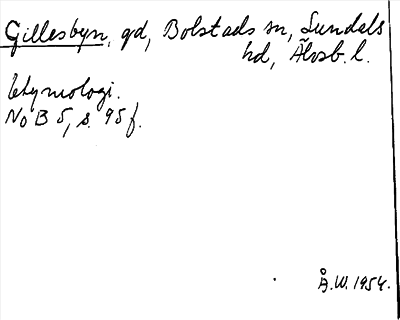 Gillesbyn, gd, Bolstads sn, Sundals
hd, Älvsb. l.
Etymologi.
NoB 5, s. 95 f.
Å.W. 1954.